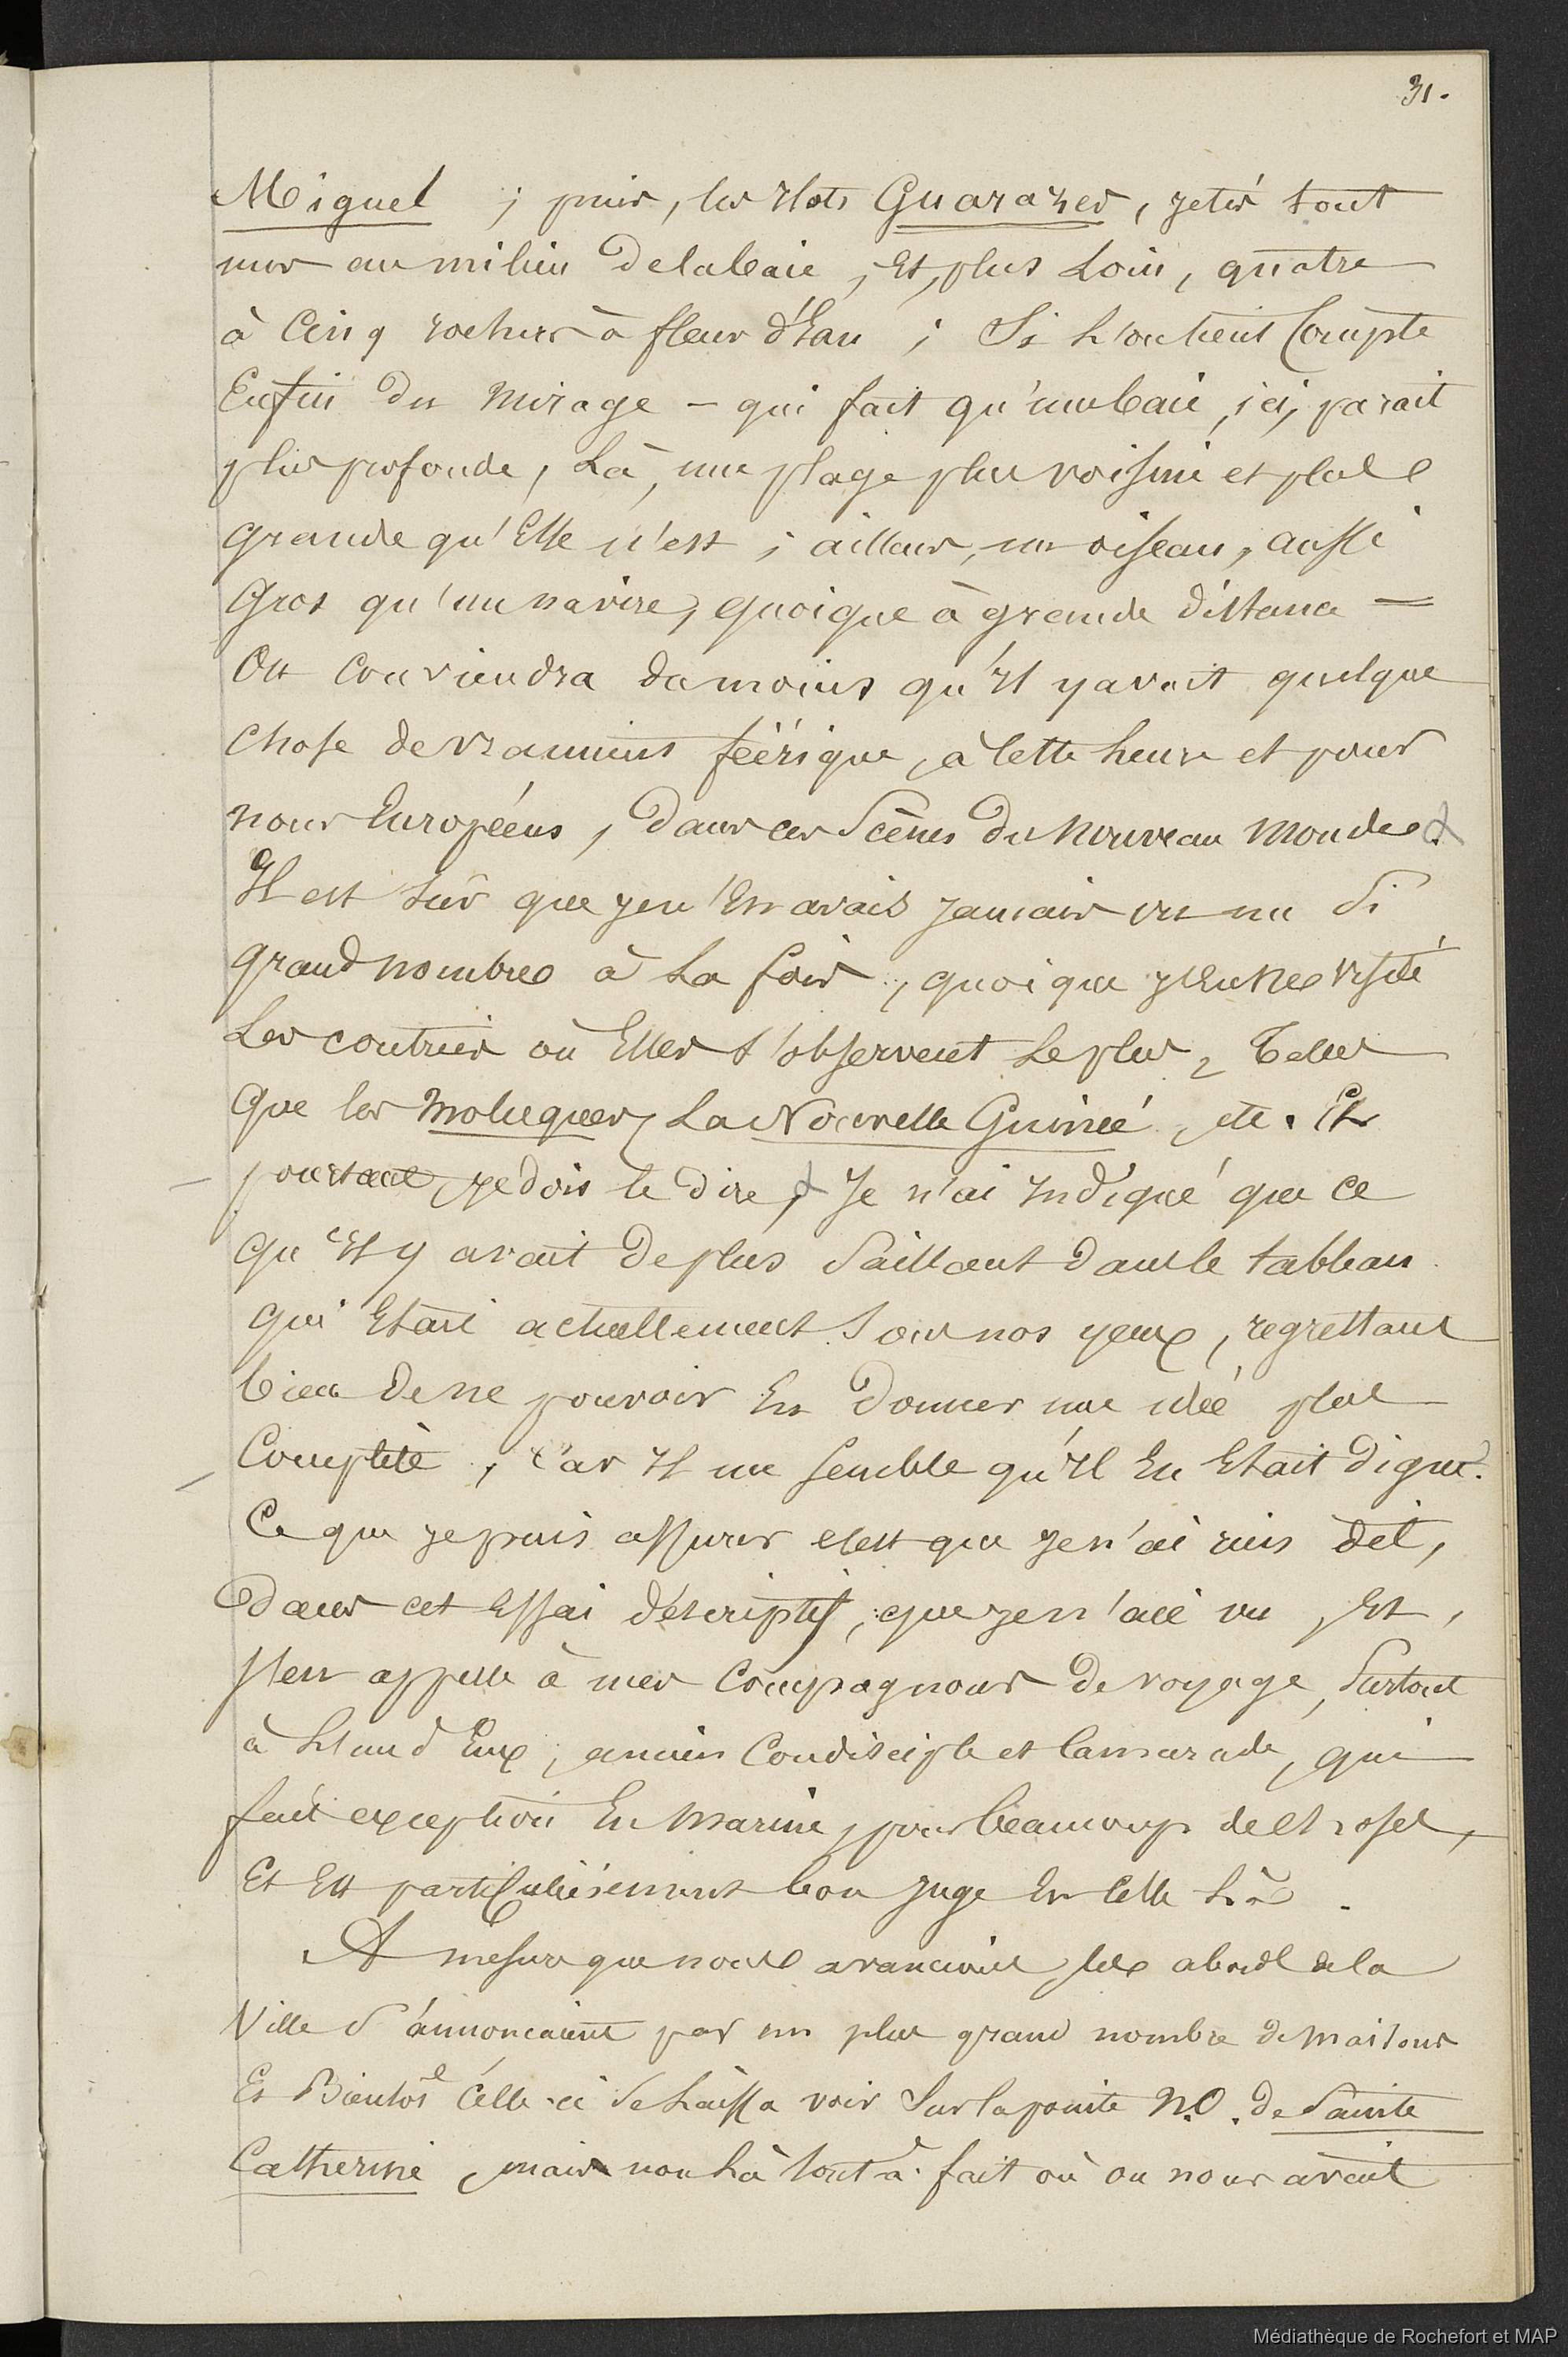 31.
Miguel ; puis, les Ilots Guarazes, jetés tout
nus au milieu de la baie, Et, plus Loin, quatre
à Cinq rochers à fleur d'Eau ; Si L'on tient Compte
Enfin du Mirage - qui fait qu'une baie, ici, parait
plus profonde, Là, une plage plus voisine et plus
grande qu'Elle n'est ; ailleurs, un oiseau, aussi
Gros qu'un navire, quoique à grande distance =
On Conviendra du moins qu'Il y avait quelque
Chose de vraiment féérique, à Cette heure et pour
nous Européens, Dans ces Scènes du Nouveau Monde.
Il est sûr que je n'En avais jamais vu un Si
grand nombre à La fois, quoique j'Eusse visité
Les contrées où Elles s'observent Le plus, Telles
Que les Moluques, La Nouvelle Guinée, etc. Et
pourtant, je dois le dire, Je n'ai Indiqué que ce
qu'Il y avait De plus Saillant Dans le tableau
qui Etait actuellement Sous nos yeux, regrettant
bien De ne pouvoir En Donner une idée plus
Complète, Car Il me Semble qu'Il En Etait Digne.
Ce que je puis assurer c'est que je n'ai rien dit,
Dans cet Essai déscriptif, que je n'aie vu, Et,
J'en appelle à mes Compagnons De voyage, Surtout
à L'un d'Eux, ancien Condisciple et Camarade, qui
fait exception En Marine, pour beaucoup de choses,
Et Est particulièrement bon Juge En Celle Là.
A mesure que nous avancions, les abords de la
Ville S'annonçaient par un plus grand nombre de maisons
Et Bientôt Celle-ci Se Laissa voir Sur la pointe N.O. de Sainte
Catherine, mais non Là tout à fait où on nous avait
Médiathèque de Rochefort et MAP